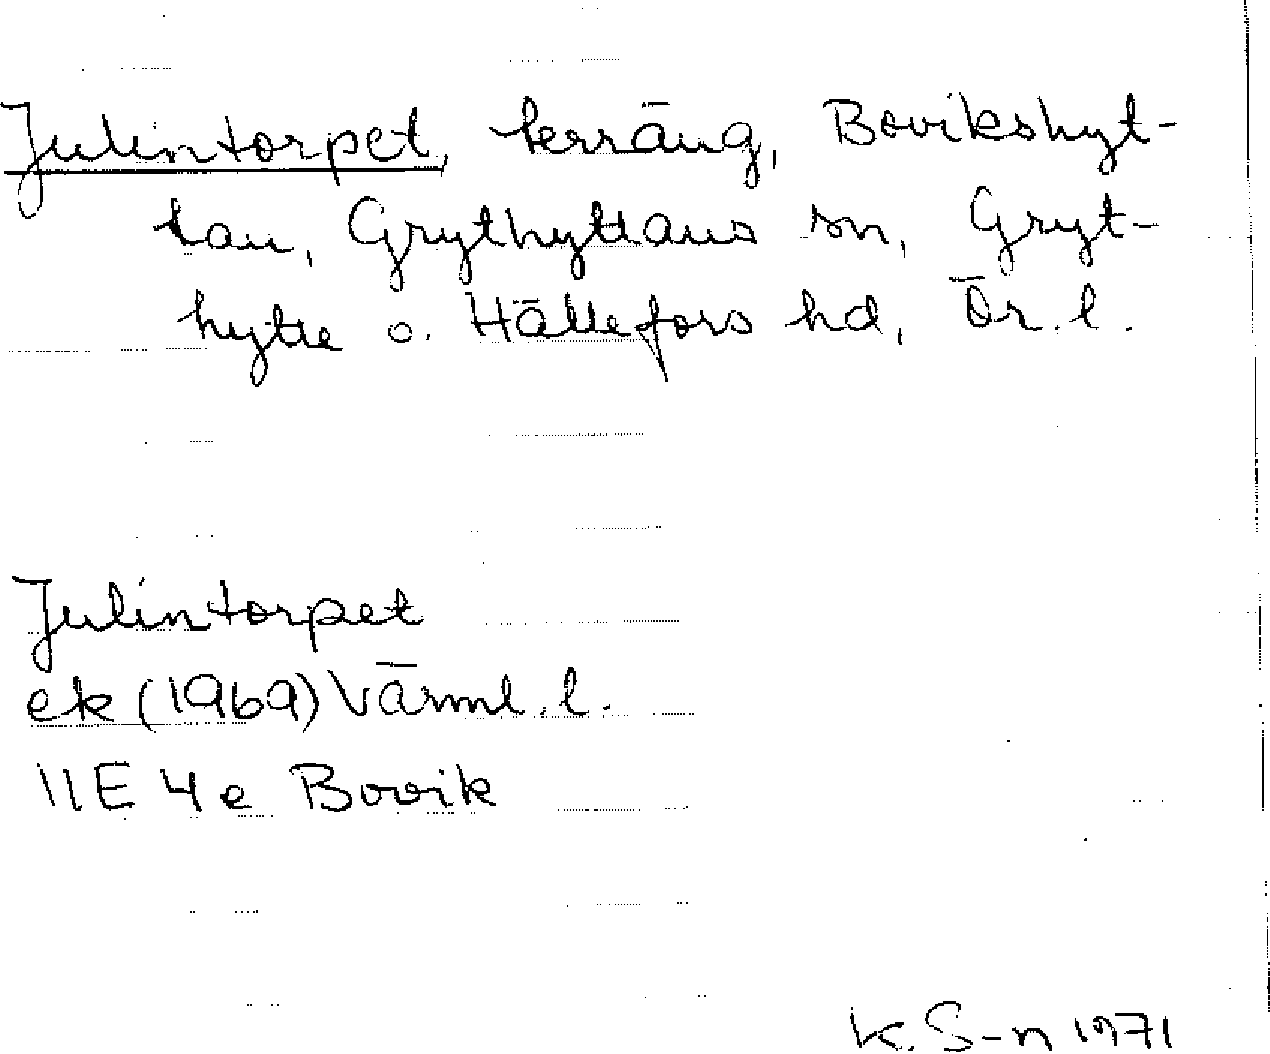 Julintorpet, terräng, Bovikshyt-
tan, Grythyttans sn, Gryt-
hytte o. Hällefors hd, Ör. l.
Julintorpet
ek (1969) Värml. l.
11E 4e Bovik
K. S-n 1971